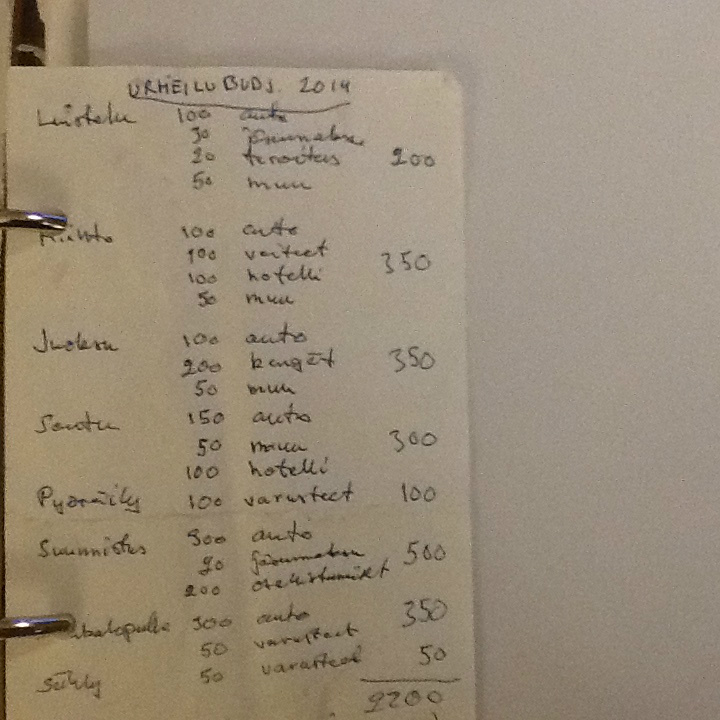 URHEILUBUDJ. 2014
Luistelu 100 auto
30 jäsenmaksu
20 teroitus 200
50 muu
Hiihto 100 auto
100 voiteet
100 hotelli 350
50 muu
Juoksu 100 auto
200 kengät 350
50 muu
Soutu 150 auto
50 muu 300
100 hotelli
Pyöräily 100 varusteet 100
Suunnistus 300 auto
jäsenmaksu 500
200 osallistumiset
300 auto 350
50 varusteet
Sähly 50 varusteet 50
2200